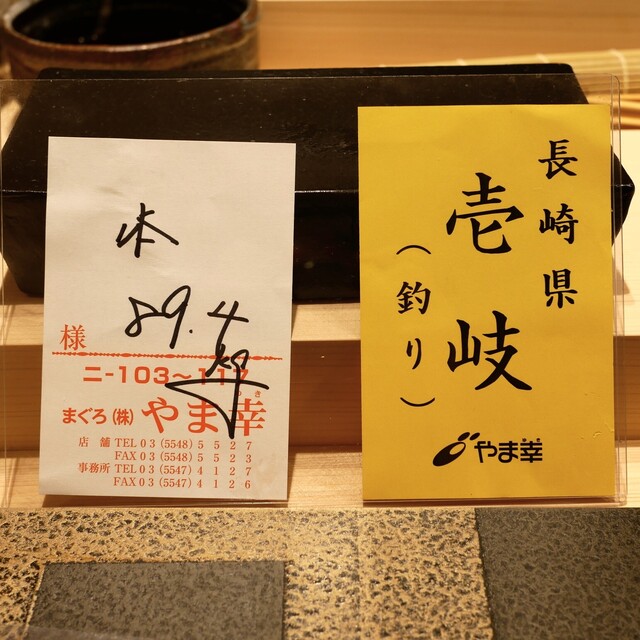 本
89.4
kg
様
ニ-103〜117
まぐろ(株)やま幸
ゆき
店 舗 TEL 03 (5548) 5527
FAX 03 (5548) 5523
事務所 TEL 03 (5547) 4127
FAX 03 (5547) 4126
長崎県
壱岐
(釣り)
やま幸